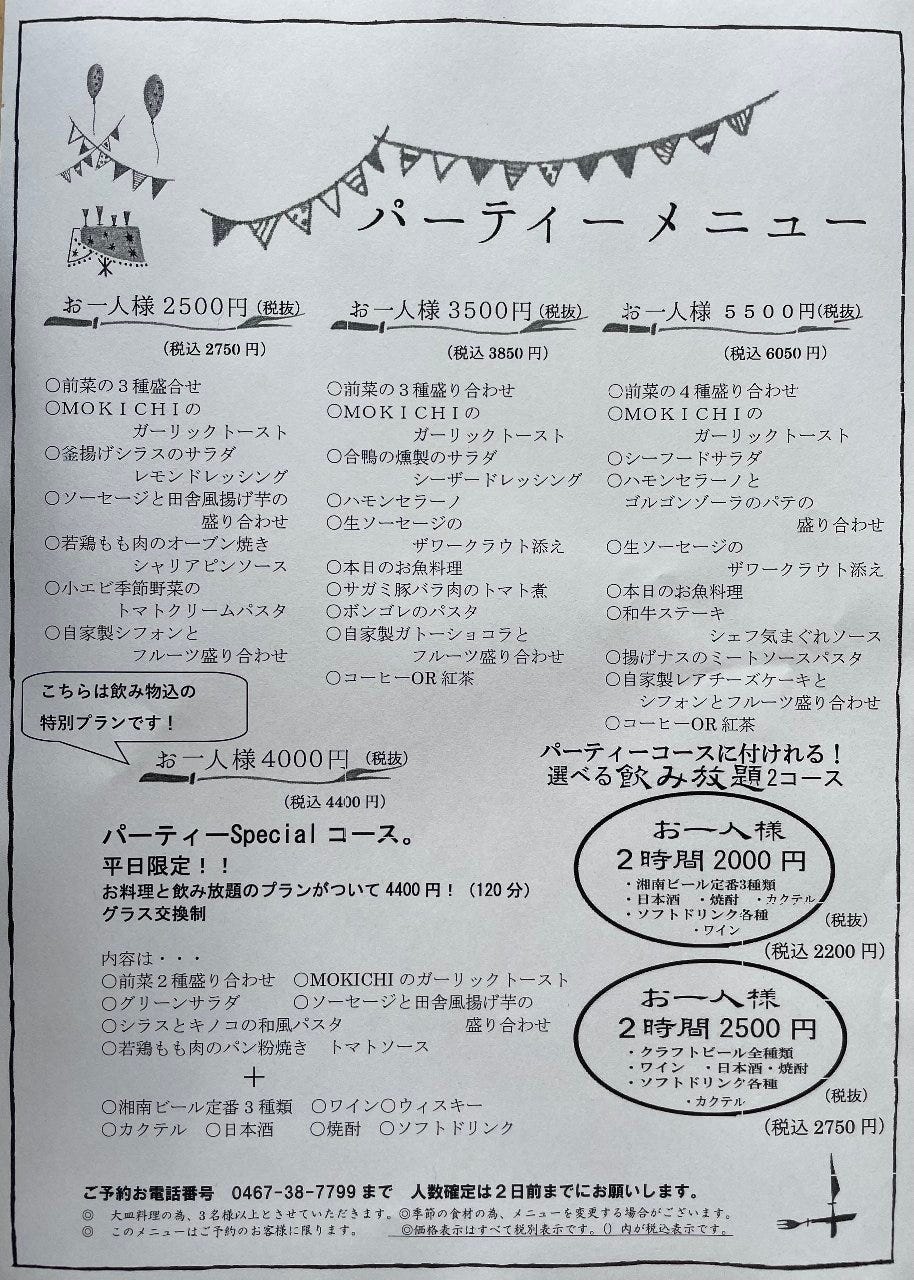 パーティーメニュー
お一人様2500円(税抜)
(税込2750円)
○前菜の3種盛合せ
○MOKICHIの
ガーリックトースト
○釜揚げシラスのサラダ
レモンドレッシング
○ソーセージと田舎風揚げ芋の
盛り合わせ
○若鶏もも肉のオーブン焼き
シャリアピンソース
○小エビ季節野菜の
トマトクリームパスタ
○自家製シフォンと
フルーツ盛り合わせ
お一人様3500円(税抜)
(税込3850円)
○前菜の3種盛り合わせ
○MOKICHIの
ガーリックトースト
○合鴨の燻製のサラダ
シーザードレッシング
○ハモンセラーノ
○生ソーセージの
ザワークラウト添え
○本日のお魚料理
○サガミ豚バラ肉のトマト煮
○ボンゴレのパスタ
○自家製ガトーショコラと
フルーツ盛り合わせ
○コーヒーOR紅茶
お一人様 5500円(税抜)
(税込6050円)
○前菜の4種盛り合わせ
○MOKICHIの
ガーリックトースト
○シーフードサラダ
○ハモンセラーノと
ゴルゴンゾーラのパテの
盛り合わせ
○生ソーセージの
ザワークラウト添え
○本日のお魚料理
○和牛ステーキ
シェフ気まぐれソース
○揚げナスのミートソースパスタ
○自家製レアチーズケーキと
シフォンとフルーツ盛り合わせ
○コーヒーOR紅茶
こちらは飲み物込の
特別プランです!
お一人様4000円 (税抜)
(税込4400円)
パーティーSpecialコース。
平日限定!!
お料理と飲み放題のプランがついて4400円!(120分)
グラス交換制
内容は・・・
○前菜2種盛り合わせ ○MOKICHIのガーリックトースト
○グリーンサラダ ○ソーセージと田舎風揚げ芋の
○シラスとキノコの和風パスタ 盛り合わせ
○若鶏もも肉のパン粉焼き トマトソース
+
○湘南ビール定番3種類 ○ワイン○ウィスキー
○カクテル ○日本酒 ○焼酎 ○ソフトドリンク
パーティーコースに付けれる!
選べる飲み放題2コース
お一人様
2時間2000円
・湘南ビール定番3種類
・日本酒 ・焼酎 ・カクテル
・ソフトドリンク各種
・ワイン
(税抜)
(税込2200円)
お一人様
2時間2500円
・クラフトビール全種類
・ワイン ・日本酒・焼酎
・ソフトドリンク各種
・カクテル
(税抜)
(税込2750円)
ご予約お電話番号 0467-38-7799まで 人数確定は2日前までにお願いします。
◎ 大皿料理の為、3名様以上とさせていただきます。◎季節の食材の為、メニューを変更する場合がございます。
◎ このメニューはご予約のお客様に限ります。 ◎価格表示はすべて税別表示です。()内が税込表示です。